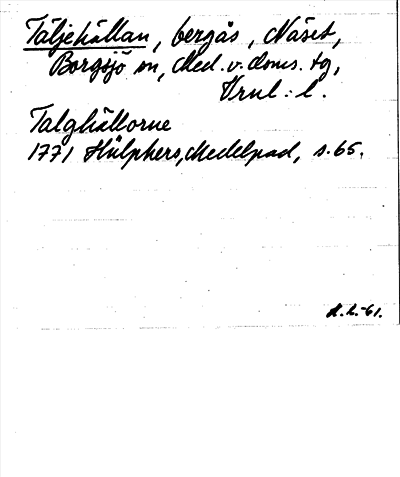 Täljehällan, bergås, Näset,
Borgsjö sn, Med. v. doms. tg,
Vrnl: l.
Talghällorne
1771 Hülphers, Medelpad, s. 65.
-61.